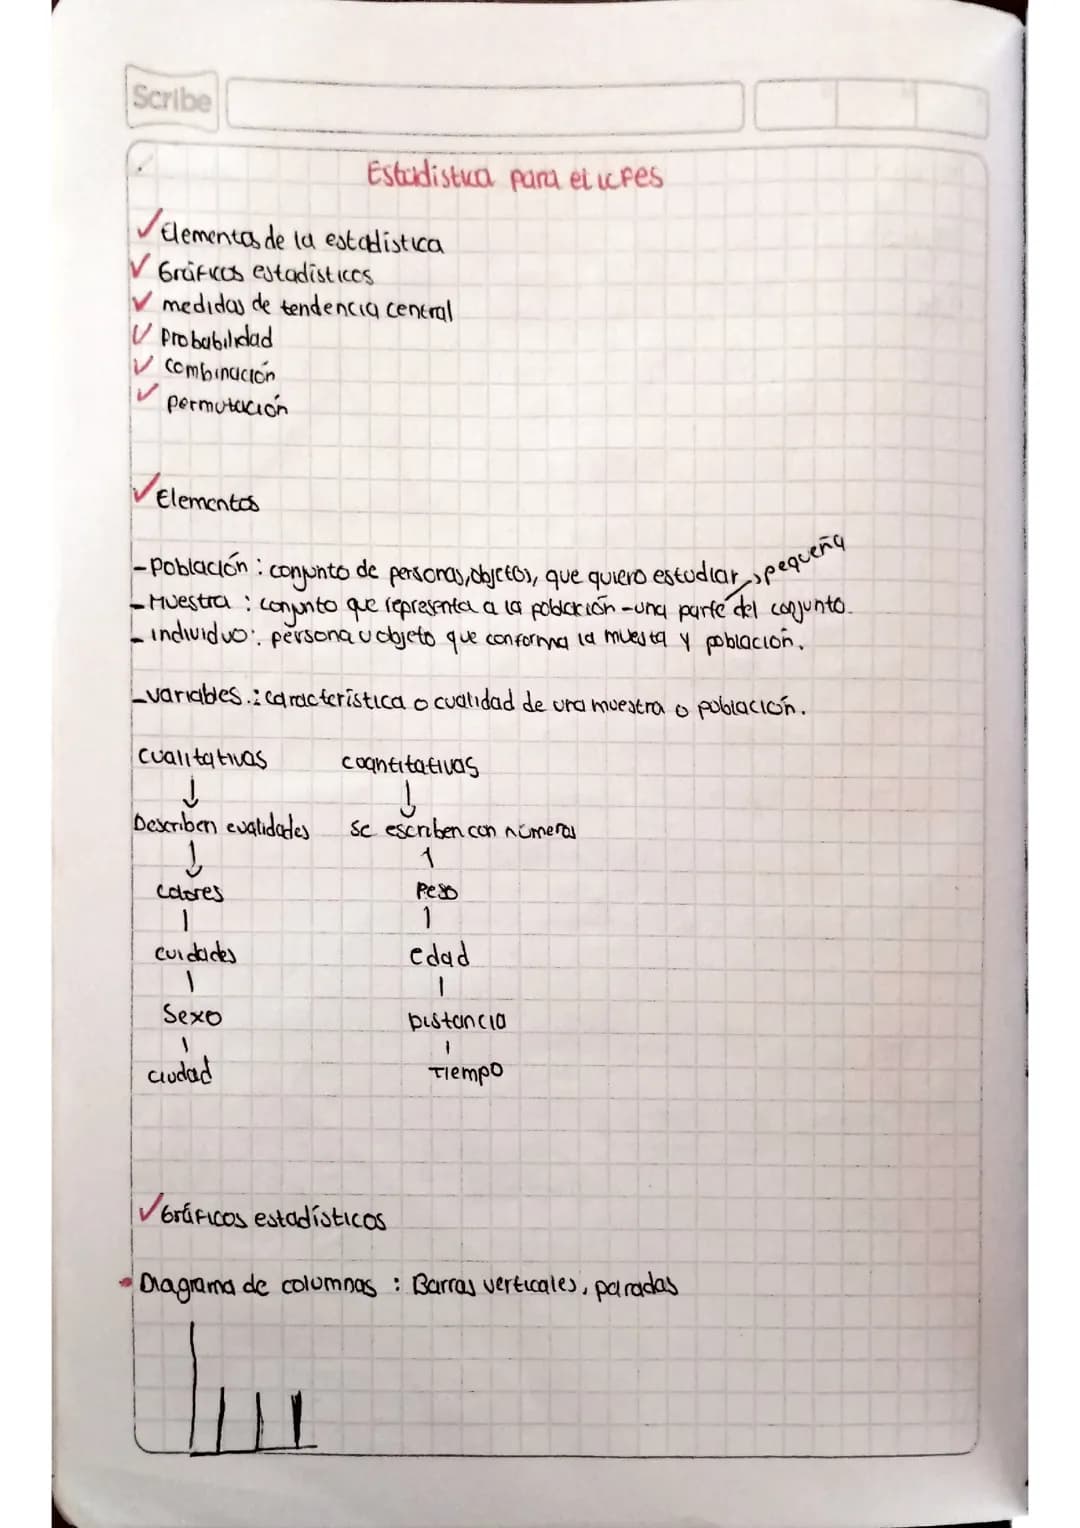 Scribe
Estadistica para el icfes
Elementos de la estadística
Gráficos estadísticos
medidas de tendencia central
Probabilidad
combinación
permutación
Elementos
-Población : conjunto de personas, objetos, que quiero estudiar pequeña
-Muestra : conjunto que representa a la población -una parte del conjunto.
-individuo: persona u objeto que conforma la muesta y población.
-variables.: característica o cualidad de una muestra o población.
Cualitativas coantitativas
Describen cualidades se escriben con números
colores Peso
cuidades edad
Sexo Distancia
ciudad Tiempo
Gráficos estadísticos
Diagrama de columnas : Barras verticales, paradas